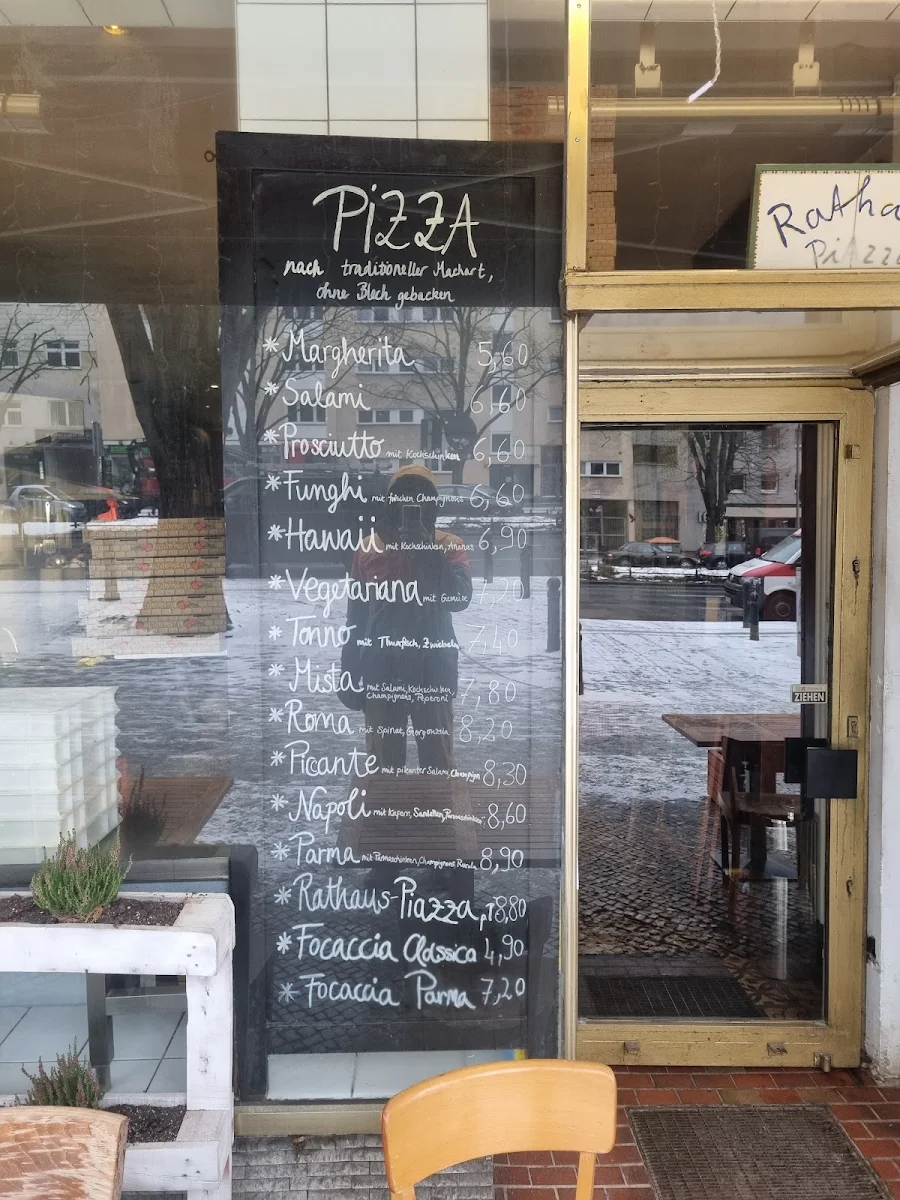 PiZZA
nach traditioneller Machart,
ohne Blech gebacken
* Margherita 5,60
* Salami 6,60
* Prosciutto mit Kochschinken 6,60
* Funghi mit frischen Champignons 6,60
* Hawaii mit Kochschinken, Ananas 6,90
* Vegetariana mit Gemüse 7,20
* Tonno mit Thunfisch, Zwiebeln 7,40
* Mista mit Salami, Kochschinken, 7,80
Champignons, Peperoni
* Roma mit Spinat, Gorgonzola 8,20
* Piccante mit pikanter Salami, Champign 8,30
* Napoli mit Kapern, Sardellen, 8,60
* Parma mit Parmaschinken, Champignons, Rucola 8,90
* Rathaus-Piazza 8,80
* Focaccia Classica 4,90
* Focaccia Parma 7,20
Ratha
Piazz
ZIEHEN